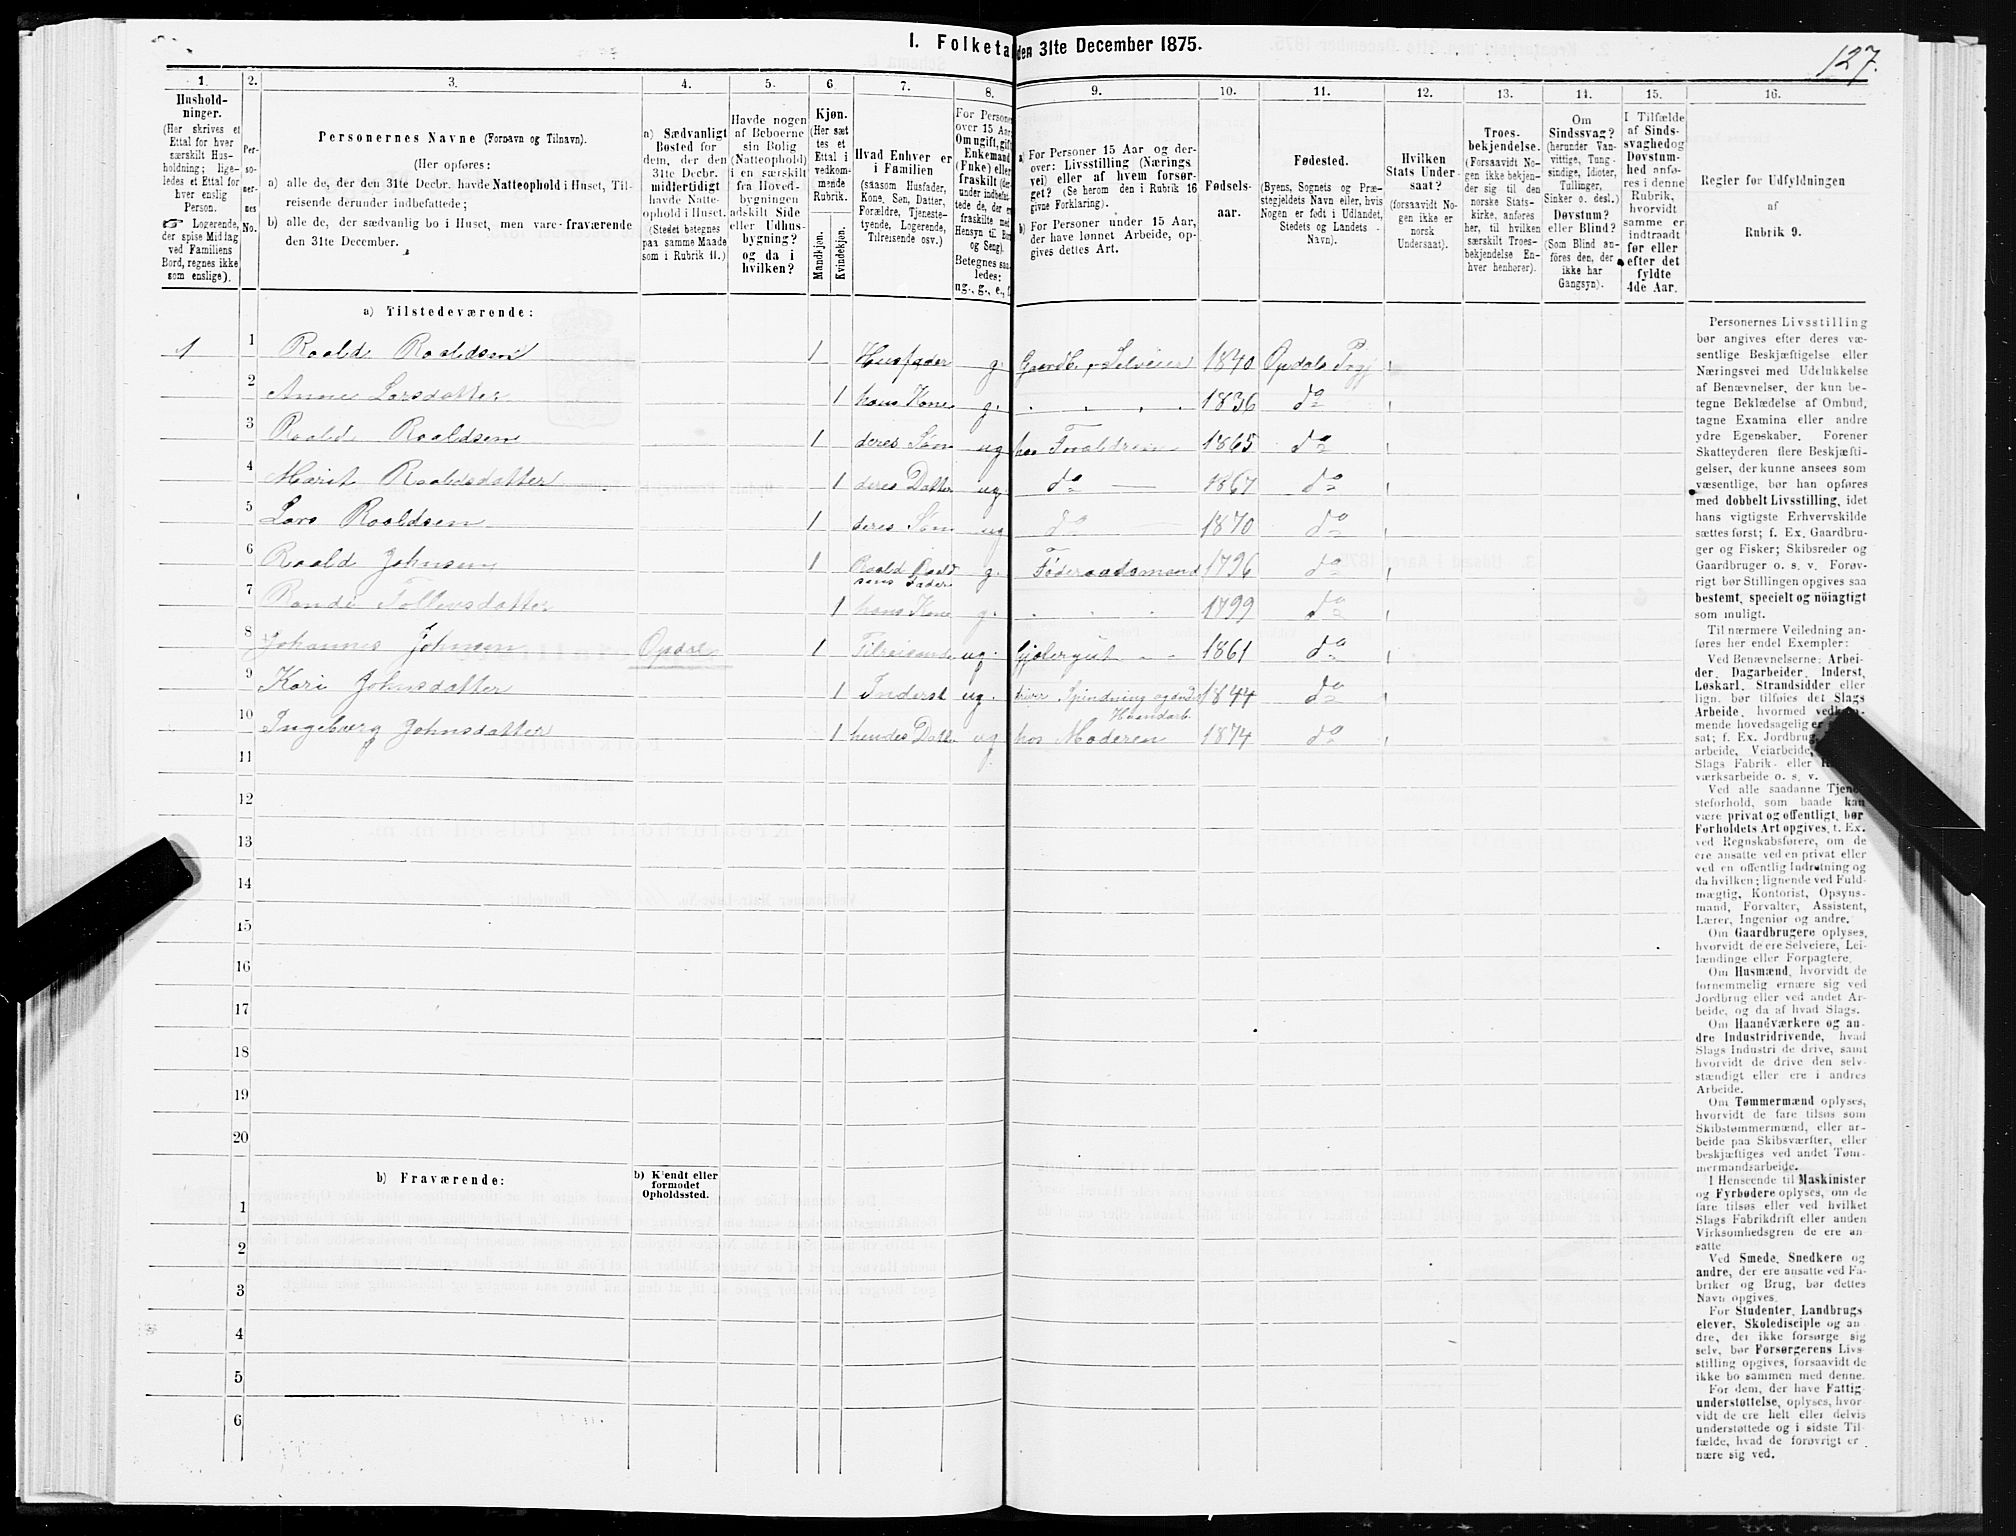 1. Folketa den 31te December 1875.
127.
1. 2. 3. 4. 5. 6. 7. 8. 9. 10. 11. 12. 13. 14. 15. 16.
Hushold-
ninger.
(Her skrives et
Ettal for hver
særskilt Hus-
holdning; lige-
ledes et Ettal for
hver enslig
Person.
☞ Logerende,
der spise Middag
ved Familiens
Bord, regnes ikke
som enslige).
Per-
so-
ner-
nes
No.
Personernes Navne (Fornavn og Tilnavn).
(Her opføres:
a) alle de, der den 31te Decbr. havde Natteophold i Huset, Til-
reisende derunder indbefattede;
b) alle de, der sædvanlig bo i Huset, men vare fraværende
den 31te December.
a) Sædvanligt
Bosted for
dem, der den
31te Decbr.
midlertidigt
havde Natte-
ophold i Huset.
(Stedet betegnes
paa samme Maade
som i Rubrik 11.)
Havde nogen
af Beboerne
sin Bolig
(Natteophold)
i en særskilt
fra Hoved-
bygningen
adskilt Side
eller Udhus-
bygning?
og da i
hvilken?
Kjøn.
(Her sæt
tes et
Ettal i
vedkom-
mende
Rubrik.
Mandkjøn.
Kvindekjøn.
Hvad Enhver er
i Familien
(saasom Husfader,
Kone, Søn, Datter,
Forældre, Tjeneste-
tyende, Logerende,
Tilreisende osv.)
For Persone
over 15 Aar
Om ugift, gift
Enkemand
(Enke) eller
fraskilt (de
under indbefat
tede de, der e
fraskilte me
Hensyn til Bo
og Seng).
Betegnes saa
ledes:
ug., g., e., f
a) For Personer 15 Aar og der-
over: Livsstilling (Nærings
vei) eller af hvem forsør-
get? (Se herom den i Rubrik 16
givne Forklaring).
b) For Personer under 15 Aar,
der have lønnet Arbeide, op-
gives dettes Art.
Fødsels-
aar.
Fødested.
(Byens, Sognets og Præ-
stegjeldets Navn eller, hvis
Nogen er født i Udlandet,
Stedets og Landets
Navn).
Hvilken
Stats Under-
saat?
(forsaavidt No-
gen ikke er
norsk
Undersaat).
Troes-
bekjendelse.
(Forsaavidt No-
gen ikke bekjen-
der sig til den
norske Stats-
kirke, anføres
her, til hvilken
særskilt Troes-
bekjendelse En-
hver henhører).
Om
Sindssvag?
(herunder Van-
vittige, Tung-
sindige, Idioter,
Tullinger,
Sinker o. desl.)
Døvstum?
eller Blind?
(Som Blind an-
föres den, der
ikke har
Gangsyn).
I Tilfælde
af Sinds-
svaghed og
Døvstum-
hed anfø-
res i denne
Rubrik,
hvorvidt
samme er
indtraadt
før eller
efter det
fyldte
4de Aar.
Regler for Udfyldningen
af
Rubrik 9.
a) Tilstedeværende:
1 1 Roald Roaldsen 1 Husfader g. Gaardb. Selveier 1840 Opdals Prgj
2 Anne Larsdatter 1 hans Kone g. 1836 do
3 Roald Roaldsen 1 deres Søn ug hos Forældrene 1865 do
4 Marit Roaldsdatter 1 deres Datter ug. do 1867 do
5 Lars Roaldsen 1 deres Søn ug do 1870 do
6 Roald Johnsen 1 Roald Roald
sens Fader g. Føderaadsmand 1796 do
7 Randi Tollevsdatter 1 hans Kone g. 1799 do
8 Johannes Johnsen Opdal 1 Tilreisende ug. Gjætergut 1861 do
9 Kari Johnsdatter 1 Inderst ug. Spindning og andet
Haandarb. 1844 do
10 Ingeborg Johnsdatter 1 hendes Datt. ug hos Moderen 1874 do
11
12
13
14
15
16
17
18
19
20
b) Fraværende:
b) Kjendt eller
formodet
Opholdssted.
1
2
3
4
5
6
Personernes Livsstilling
bør angives efter deres væ-
sentlige Beskjæftigelse eller
Næringsvei med Udelukkelse
af Benævnelser, der kun be-
tegne Beklædelse af Ombud,
tagne Examina eller andre
ydre Egenskaber. Forener
Skatteyderen flere Beskjæfti-
gelser, der kunne ansees som
væsentlige, bør han opføres
med dobbelt Livsstilling, idet
hans vigtigste Erhvervskilde
sættes først; f. Ex. Gaardbru-
ger og Fisker; Skibsreder og
Gaardbruger o. s. v. Forøv-
rigt bør Stillingen opgives saa
bestemt, specielt og nöiagtigt
som muligt.
Til nærmere Veiledning an-
føres her endel Exempler:
Ved Benævnelserne: Arbei-
der, Dagarbeider, Inderst,
Løskarl, Strandsidder eller
lign. bør tilføies det Slags
Arbeide, hvormed vedkom-
mende hovedsagelig er
sat; f. Ex. Jordbrug,
arbeide, Veiarbeide,
Slags Fabrik- eller
værksarbeide o. s. v.
Ved alle saadanne Tjene-
steforhold, som baade kan
være privat og offentligt, bør
Forholdets Art opgives, t. Ex.
ved Regnskabsførere, om de
ere ansatte ved en privat eller
ved en offentlig Indretning og
da hvilken; lignende ved Fuld-
mægtig, Kontorist, Opsyns-
mand, Forvalter, Assistent,
Lærer, Ingeniør og andre.
Om Gaardbrugere oplyses,
hvorvidt de ere Selveiere, Lei-
lændinge eller Forpagtere.
Om Husmænd, hvorvidt de
fornemmelig ernære sig ved
Jordbrug eller ved andet Ar-
beide, og da af hvad Slags.
Om Haandværkere og an-
dre Industridrivende, hvad
Slags Industri de drive, samt
hvorvidt de drive den selv-
stændigt eller ere i andres
Arbeide.
Om Tømmermænd oplyses,
hvorvidt de fare tilsøs som
Skibstømmermænd, eller ar-
beide paa Skibsværfter, eller
beskjæftiges ved andet Tøm-
mermandsarbeide.
I Henseende til Maskinister
og Fyrbødere oplyses, om de
fare tilsøs eller ved hvilket
Slags Fabrikdrift eller anden
Virksomhedsgren de ere an-
satte.
Ved Smede, Snedkere og
andre, der ere ansatte ved Fa-
briker og Brug, bør dettes
Navn opgives.
For Studenter, Landbrugs
elever, Skoledisciple og an
dre, der ikke forsørge sig
selv, bør Forsørgerens Livs-
stilling opgives, forsaavidt de
ikke bo sammen med denne.
For dem, der have Fattig-
understøttelse, oplyses, hvor-
vidt de ere helt eller delvis
understøttede og i sidste Til-
fælde, hvad de forøvrigt er
nære sig ved.